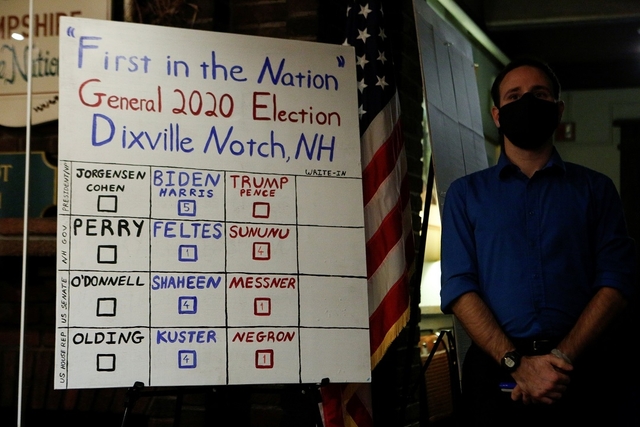 MPSHIRE
"First in the Nation"
General 2020 Election
Dixville Notch, NH
PRESIDENT/VP
JORGENSEN COHEN
BIDEN HARRIS 5
TRUMP PENCE
WRITE-IN
NH GOV
PERRY
FELTES 1
SUNUNU 4
US SENATE
O'DONNELL
SHAHEEN 4
MESSNER 1
US HOUSE REP
OLDING
KUSTER 4
NEGRON 1